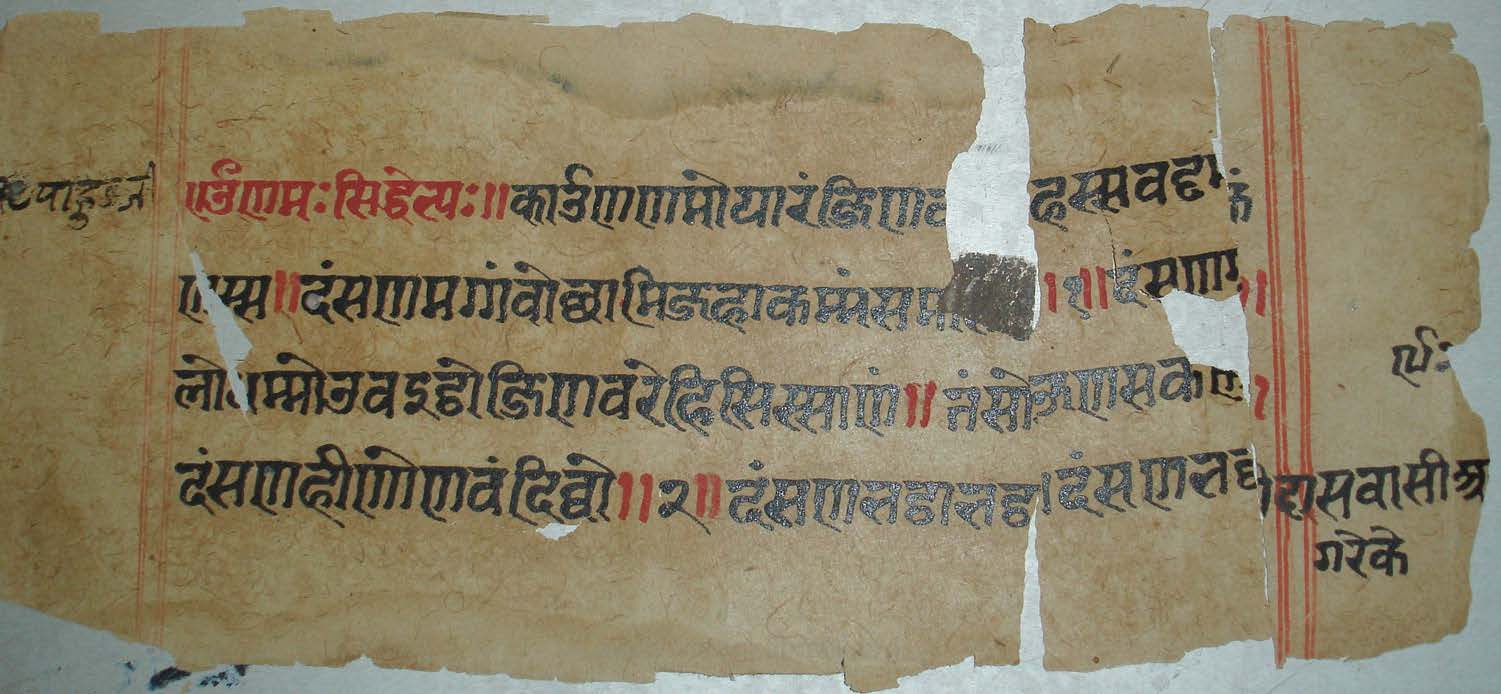 ॥र्उणमः सिद्धेभ्यः॥ काऊण णमोयारं जिणव हस्स वड्ढ
णस्स॥ दंसणमग्गं वोच्छामि जहाकम्मं समा ॥१॥ दंसण
लो धम्मो उवइट्ठो जिणवरेहि सिस्साणं॥ तं सोऊण सक
दंसणहीणो ण वंदिव्वो॥२॥ दंसणभट्ठा भट्ठा दंसणभट्ठ सवासी
गरेके